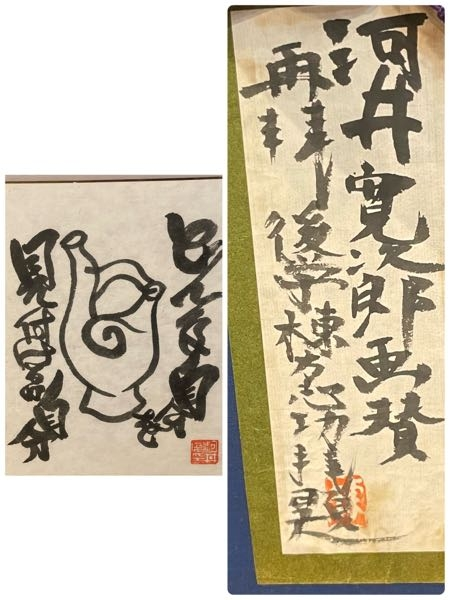 どんな自分が
見付かるか自分
河井寛次郎画賛
再拝
後学棟志功
題